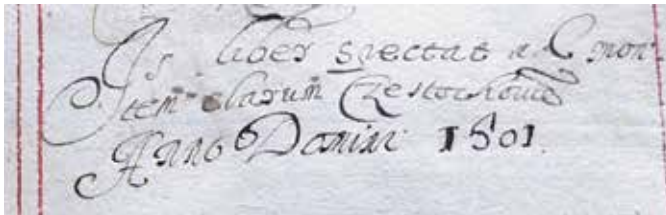 Is liber spectat a C mon-
tem clarum Czestochouie
Anno Domini 1501.